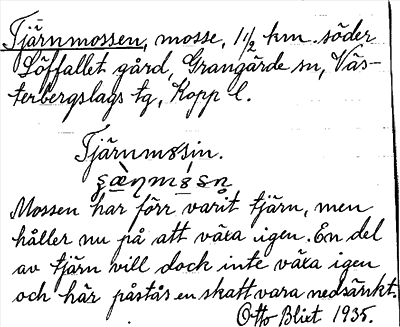 Tjärnmossen, mosse, 1 1/2 km. söder
Löffallet gård, Grangärde sn, Väs-
terbergslags tg, Kopp l.
Tjärnmosin.
Mossen har förr varit tjärn, men
håller nu på att växa igen. En del
av tjärn vill dock inte växa igen
och här påstås en skatt vara nedsänkt.
Otto Bliet 1935.